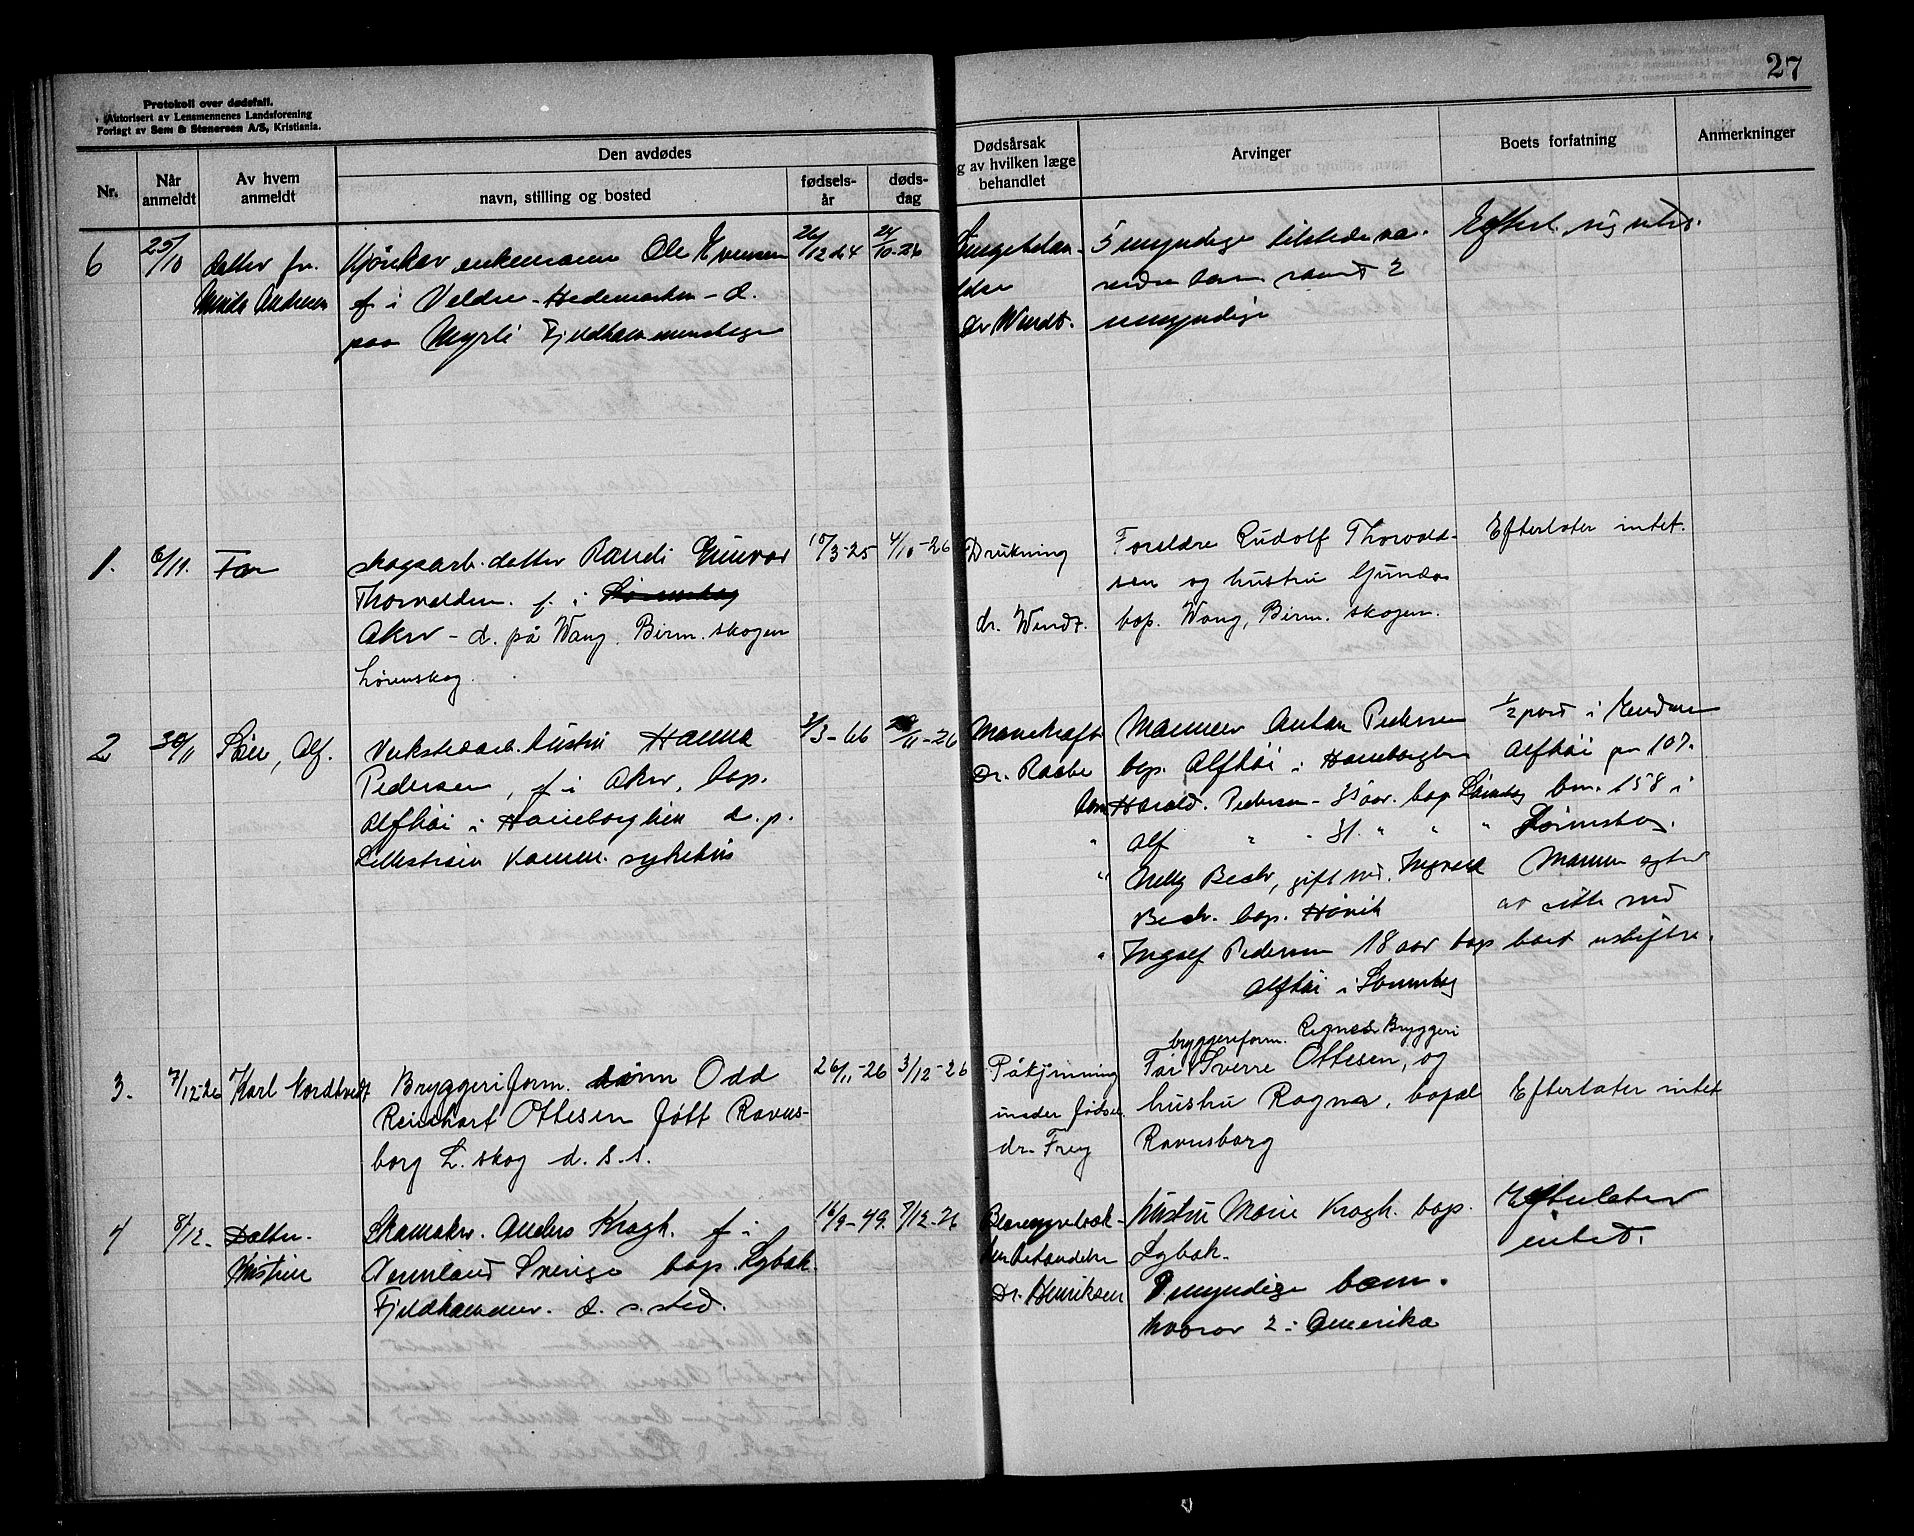 27
Protokoll over dødsfall.
Autorisert av Lensmennenes Landsforening
Forlagt av Sem & Stenersen A/S, Kristiania.
Nr.
Når anmeldt
Av hvem anmeldt
Den avdødes
navn, stilling og bosted
fødselsår
dødsdag
Dødsårsak
g av hvilken læge
behandlet
Arvinger
Boets forfatning
Anmerkninger
6 25/10 datter fru Andresen
enkemann Ole Evensen
f i Veldre - Hedemarken - d.
paa Myrli
24/10-26
dr Windt.
5 myndige tilstedevæ-
rende barn samt 2
umyndige
1. 6/11. Far
skogsarb. datter Randi Gunvor
Thorvaldsen. f. i Lørenskog
Aker - d. på Wang. Birm. skogen
Lørenskog
10/3-25 4/10-26
Drukning
dr. Windt.
Foreldre Rudolf Thorvald-
sen og hustru Gunda
bop. Wang, Birm. skogen.
Efterlater intet.
2 30/11 Søn, Alf.
Verkstedarb. hustru Hanna
Pedersen, f. i Aker, bop.
Alfhøi i Haneborglien d. p.
Lillestrøm komm. sykehus
3/3-66 11-26
Mavekræft
Dr. Raabe
Mannen Anton Pedersen
bop. Alfhøi i Haneborglien
barn Harald. Pedersen - 35 aar. bop Lørenskog
" Alf " " 31. " " "
" Nelly Bech, gift med. Ingvald
Bech. bop. Høvik
" Ingolf Pedersen 18 aar bop
Alfhøi i Lørenskog
1/2 part i Eiendommen
Alfhøi gn 107.
bn. 158 i
Lørenskog.
Mannen agter
at sitte med
boet uskiftet.
3. 7/12-26 Karl Nordtvedt
Bryggeriform. sønn Odd
Reinhart Ottesen født Ravns-
borg L. skog d. s. s.
26/11-26 3/12-26
Påkjenning
under fødsel
dr. Frey
bryggeriform. Bryggeri
Far Sverre Ottesen, og
hustru Ragna, bopæl
Ravnsborg
Efterlater intet
4 8/12- Datter Kristine
Skomaker. Anders Kragh. f i
Vermland Sverige bop. Lybæk.
Fjeldhammer. d. s. sted.
16/9-49. 7/12-26
Dr. Henriksen
Hustru Marie Kragh. bop.
Lybæk.
myndige barn.
hvorav 2 i Amerika
Efterlater
intet.